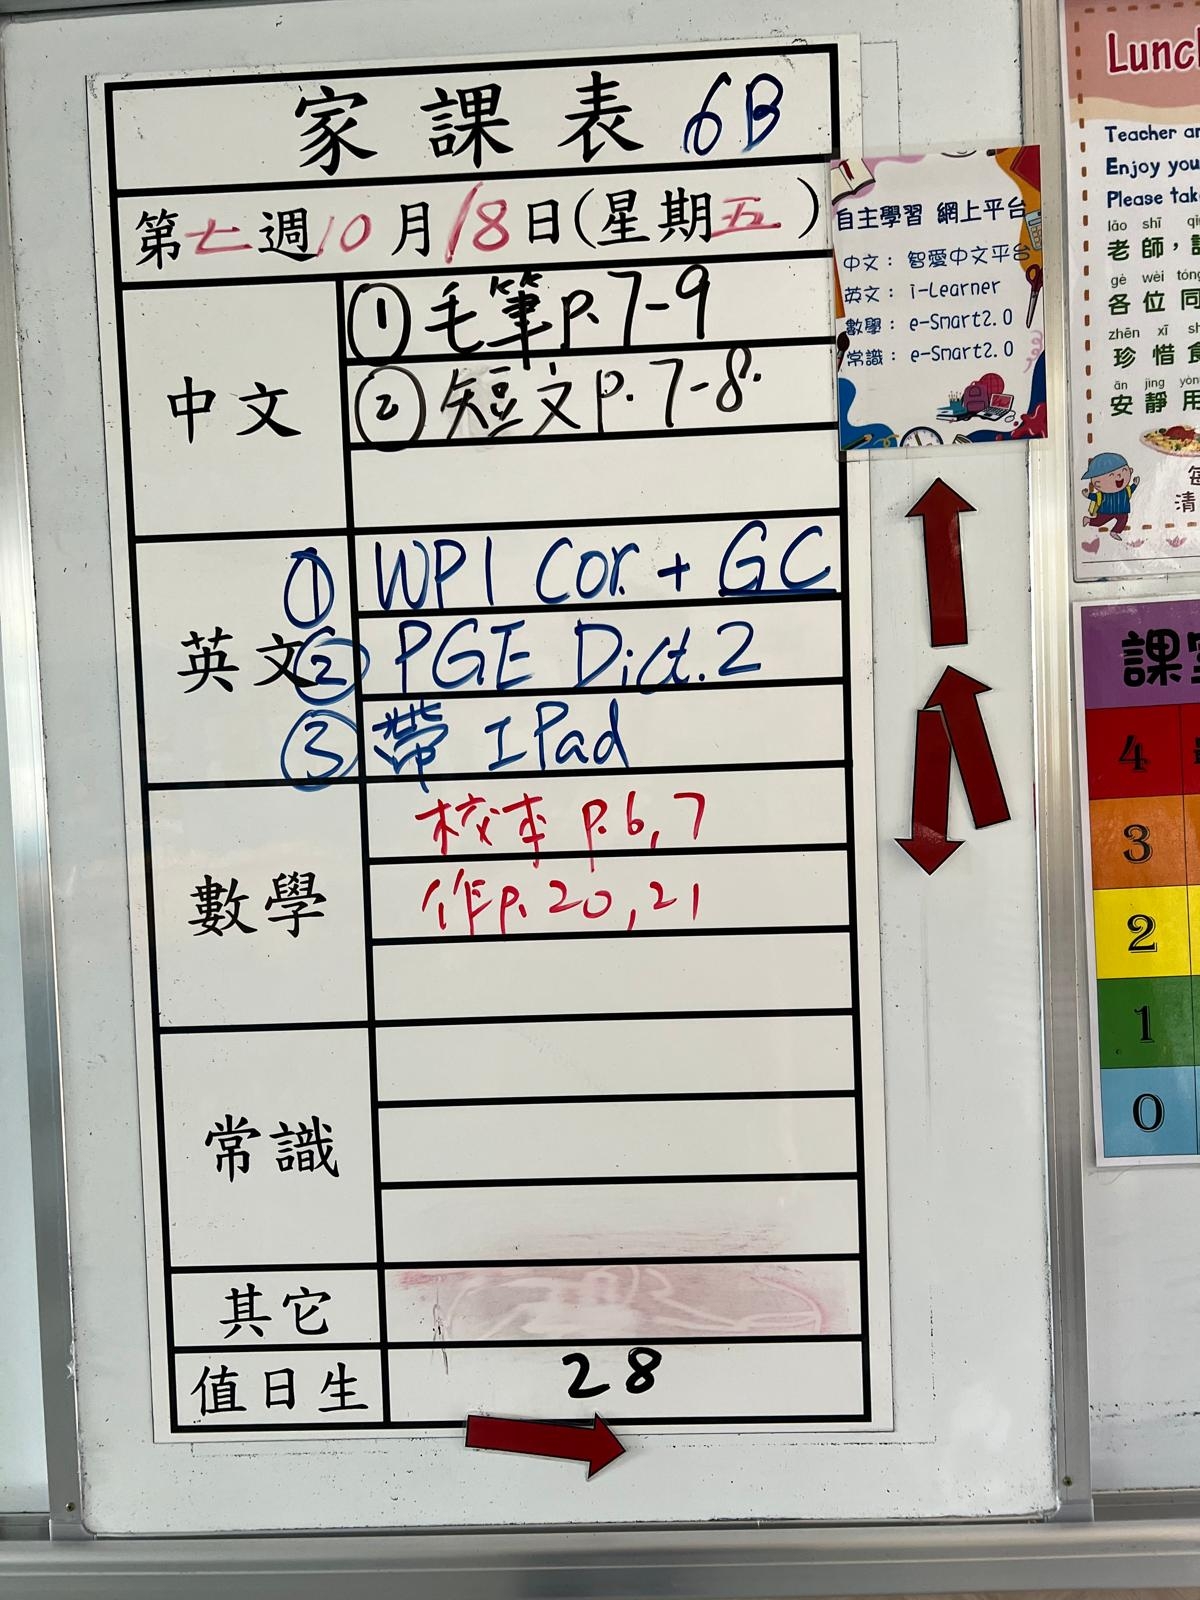 家課表 6B
第七週10月18日(星期五)
中文
①毛筆p.7-9
②短文p.7-8.
英文
① WP1 Cor. + GC
② PGE Dict.2
③ 帶 IPad
數學
校本 p.6,7
作p.20,21
常識
其它
值日生
28
自主學習 網上平台
中文： 智愛中文平台
英文： i-Learner
數學： e-Smart2.0
常識： e-Smart2.0
Lunch
Teacher
Enjoy you
Please take
lǎo shī
老師，
gè wèi tóng
各位同
zhēn xī
珍惜
ān jìng yòng
安靜用
清
課室
4
3
2
1
0